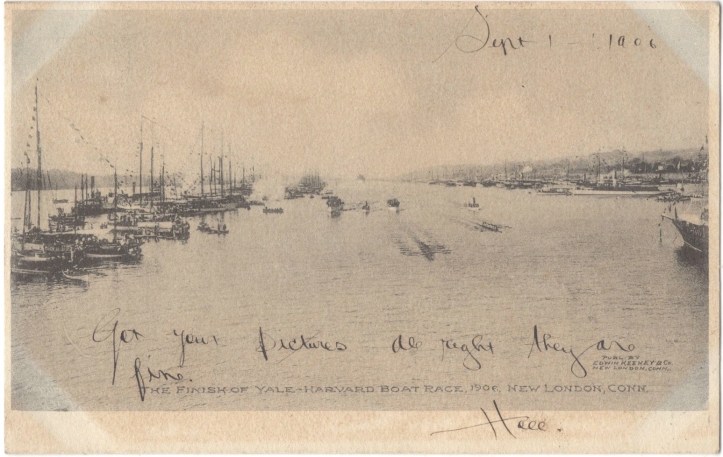 Sept 1 - 1906
Got your pictures all right they are
fine.
PUBL. BY
EDWIN KEENEY & CO.
NEW LONDON, CONN.
THE FINISH OF YALE-HARVARD BOAT RACE, 1906, NEW LONDON, CONN.